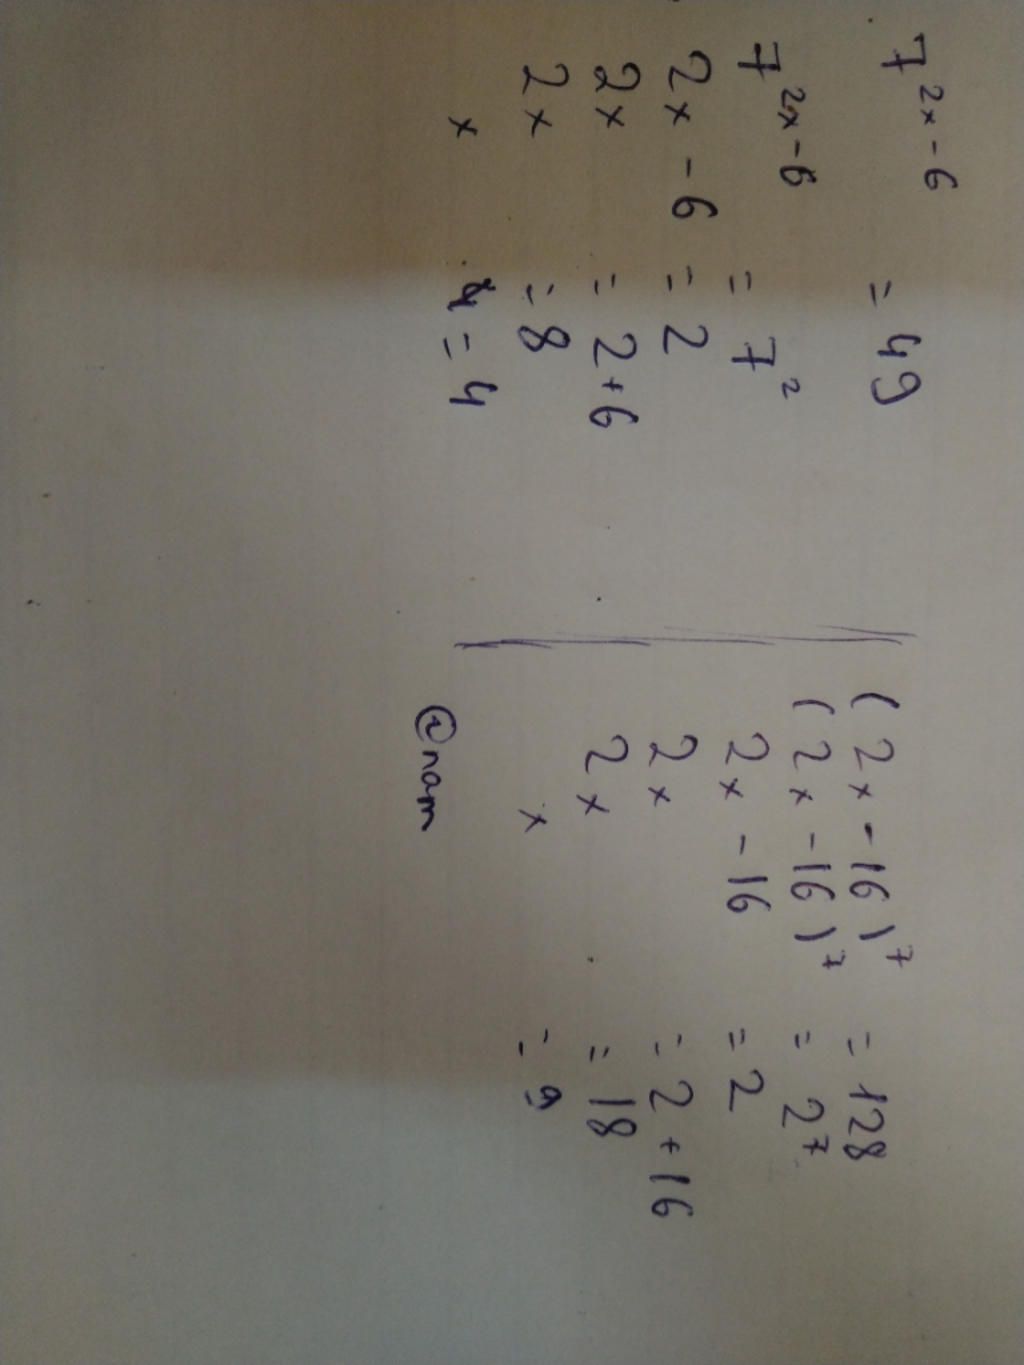 7^{2x-6} = 49
7^{2x-6} = 7^2
2x - 6 = 2
2x = 2+6
2x = 8
x = 4
(2x - 16)^7 = 128
(2x - 16)^7 = 2^7
2x - 16 = 2
2x = 2 + 16
2x = 18
x = 9
@nam